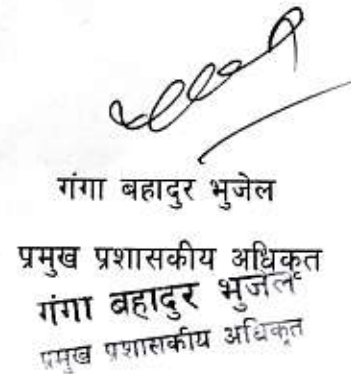 गंगा बहादुर भुजेल
प्रमुख प्रशासकीय अधिकृत
गंगा बहादुर भुजेल
प्रमुख प्रशासकीय अधिकृत